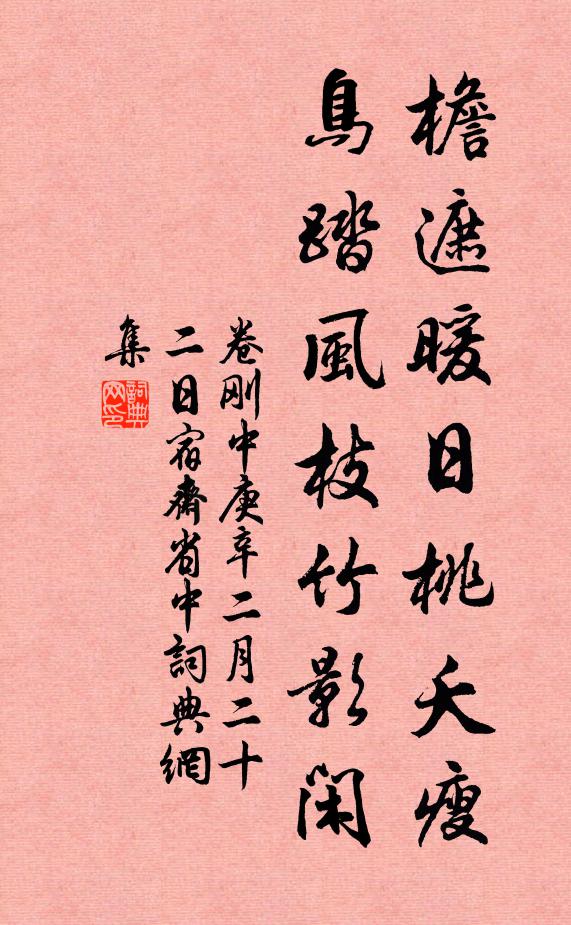 檐遮暖日桃夭瘦
鳥踏風枝竹影閑
卷剛中庚辛二月二十
二日宿齋省中詞典網
集
詞典
网印